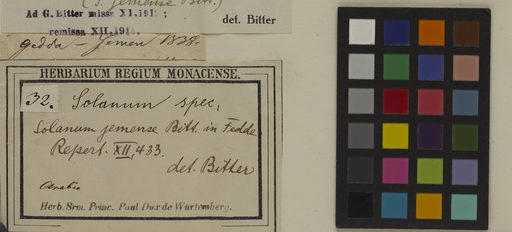 (S. jemense Bitt.)
Ad G. Bitter missa XI.191 ;
remissa XII.191 .
det. Bitter
Gedda - Jemen
HERBARIUM REGIUM MONACENSE.
32. Solanum spec,
Solanum jemense Bitt. in Fedde
Repert. XII, 433.
det. Bitter
Arabia
Herb. Srm. Princ. Paul Dux de Würtemberg.